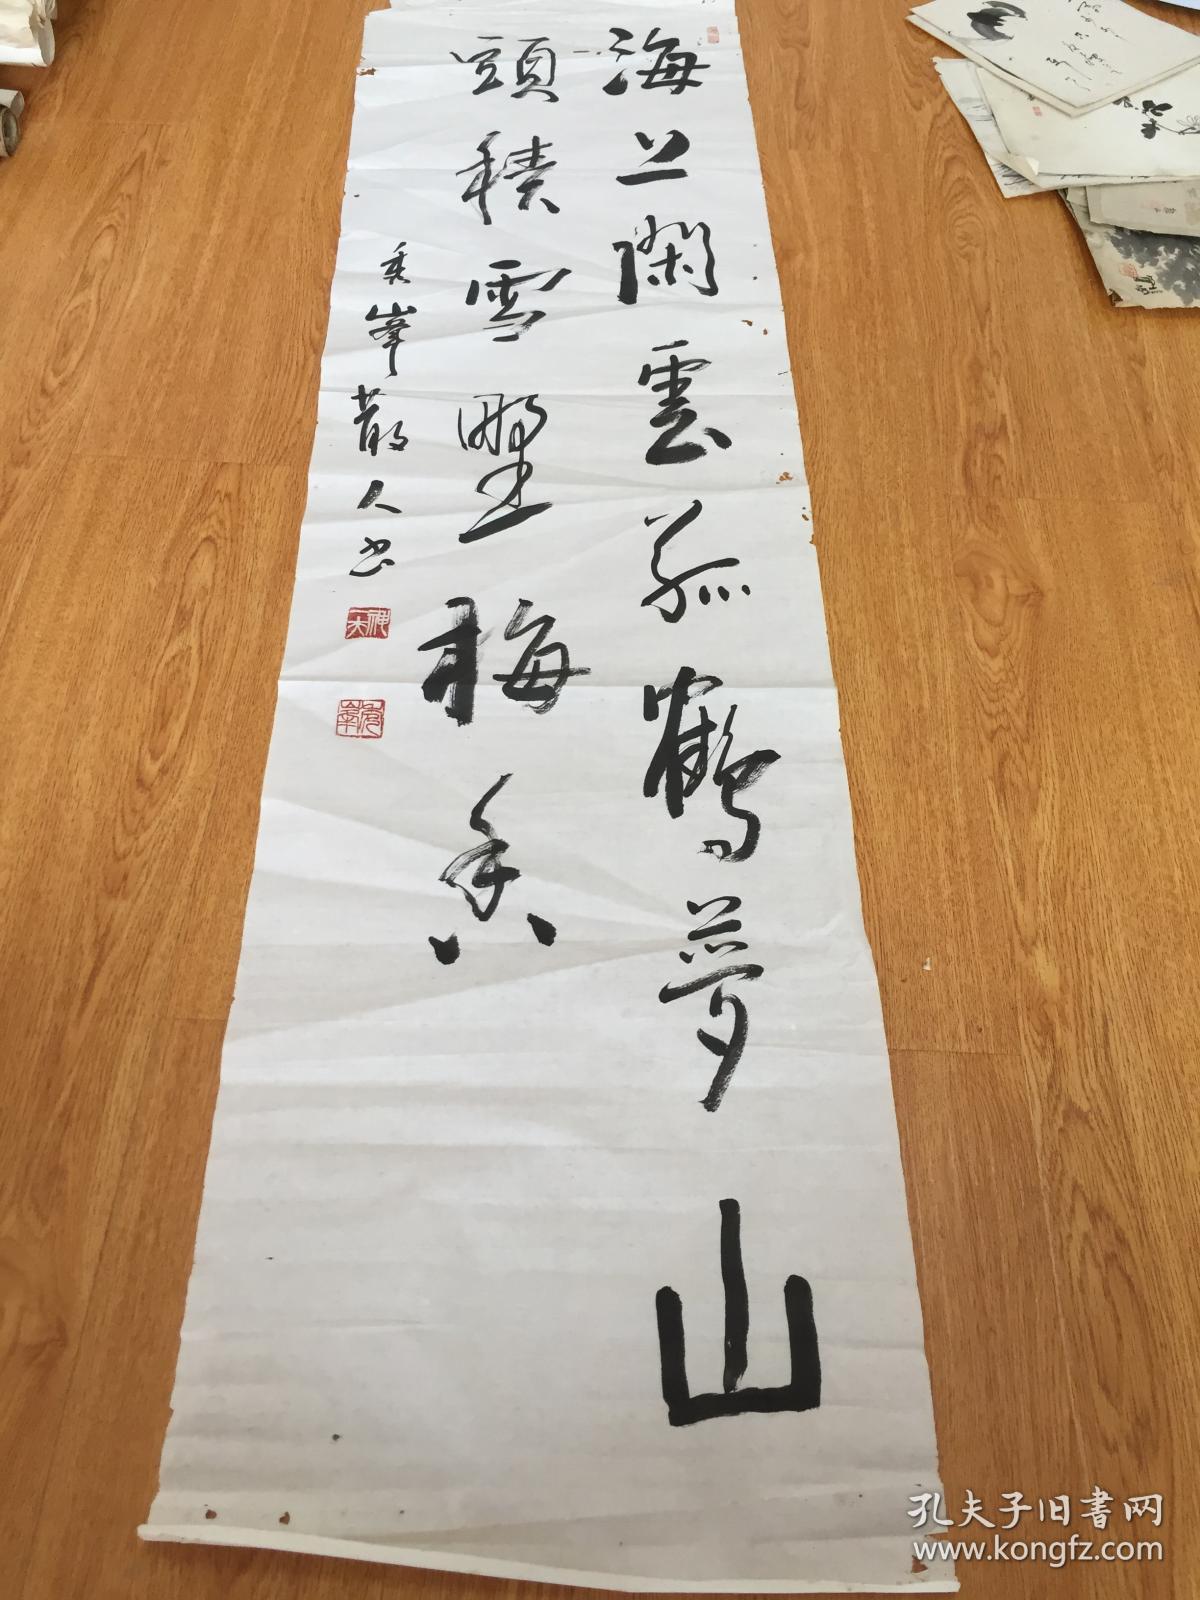 海上闲雲孤鶴夢山
頭積雪野梅香
峯散人书
孔夫子旧書网
www.kongfz.com